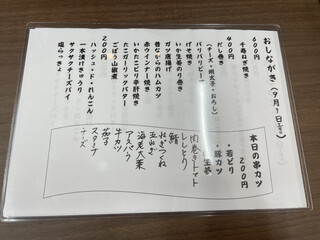 おしながき（９月９日㊏）
６００円
千寿ねぎ焼き
４００円
だし巻き
（チーズ・明太子・おろし）
パリパリピーマン
げそ焼き
いか生姜のり巻き
ガツ唐揚げ
昔ながらのハムカツ
赤ウインナー焼き
いたこかどり辛肘焼き
たこガーリックバター
ごぼう山椒煮
２００円
ハッシュ・ド・れんこん
一本漬けきゅうり
サクサクチーズパイ
塩らっきょ
本日の串カツ
２００円
・若どり
・豚カツ
・生姜
肉巻きトマト
ししとう
鯖
ねぎつくね
玉ねぎ
海老大葉
アスパラ
牛カツ
茄子
スタミナ
チーズ